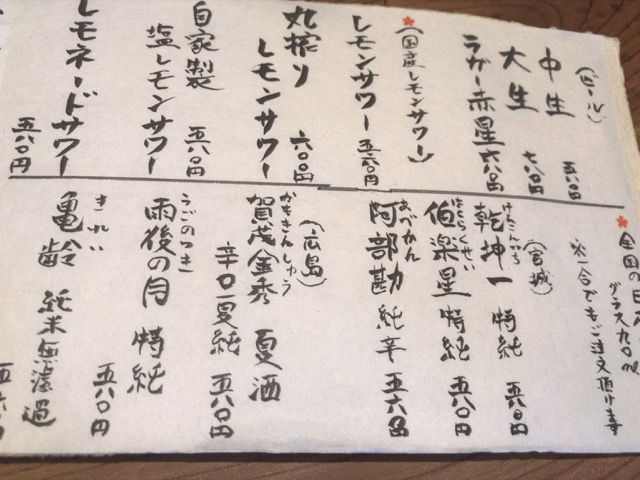 (ビール)
中生 五八〇円
大生 七八〇円
ラガー赤星 六八〇円
*(国産レモンサワー)
レモンサワー 五六〇円
丸搾り
レモンサワー 六〇〇円
自家製
塩レモンサワー 五八〇円
レモネードサワー 五八〇円
*全国の日
グラス九〇
※一合でもご注文頂けます
(宮城)
けんこんいち
乾坤一 特純 五八〇円
はくらくせい
伯楽星 特純 五八〇円
あべかん
阿部勘 純辛 五六〇円
(広島)
かもきんしゅう
賀茂金秀 夏酒
辛口夏純 五八〇円
うごのつき
雨後の月 特純 五八〇円
きれい
亀齢 純米無濾過